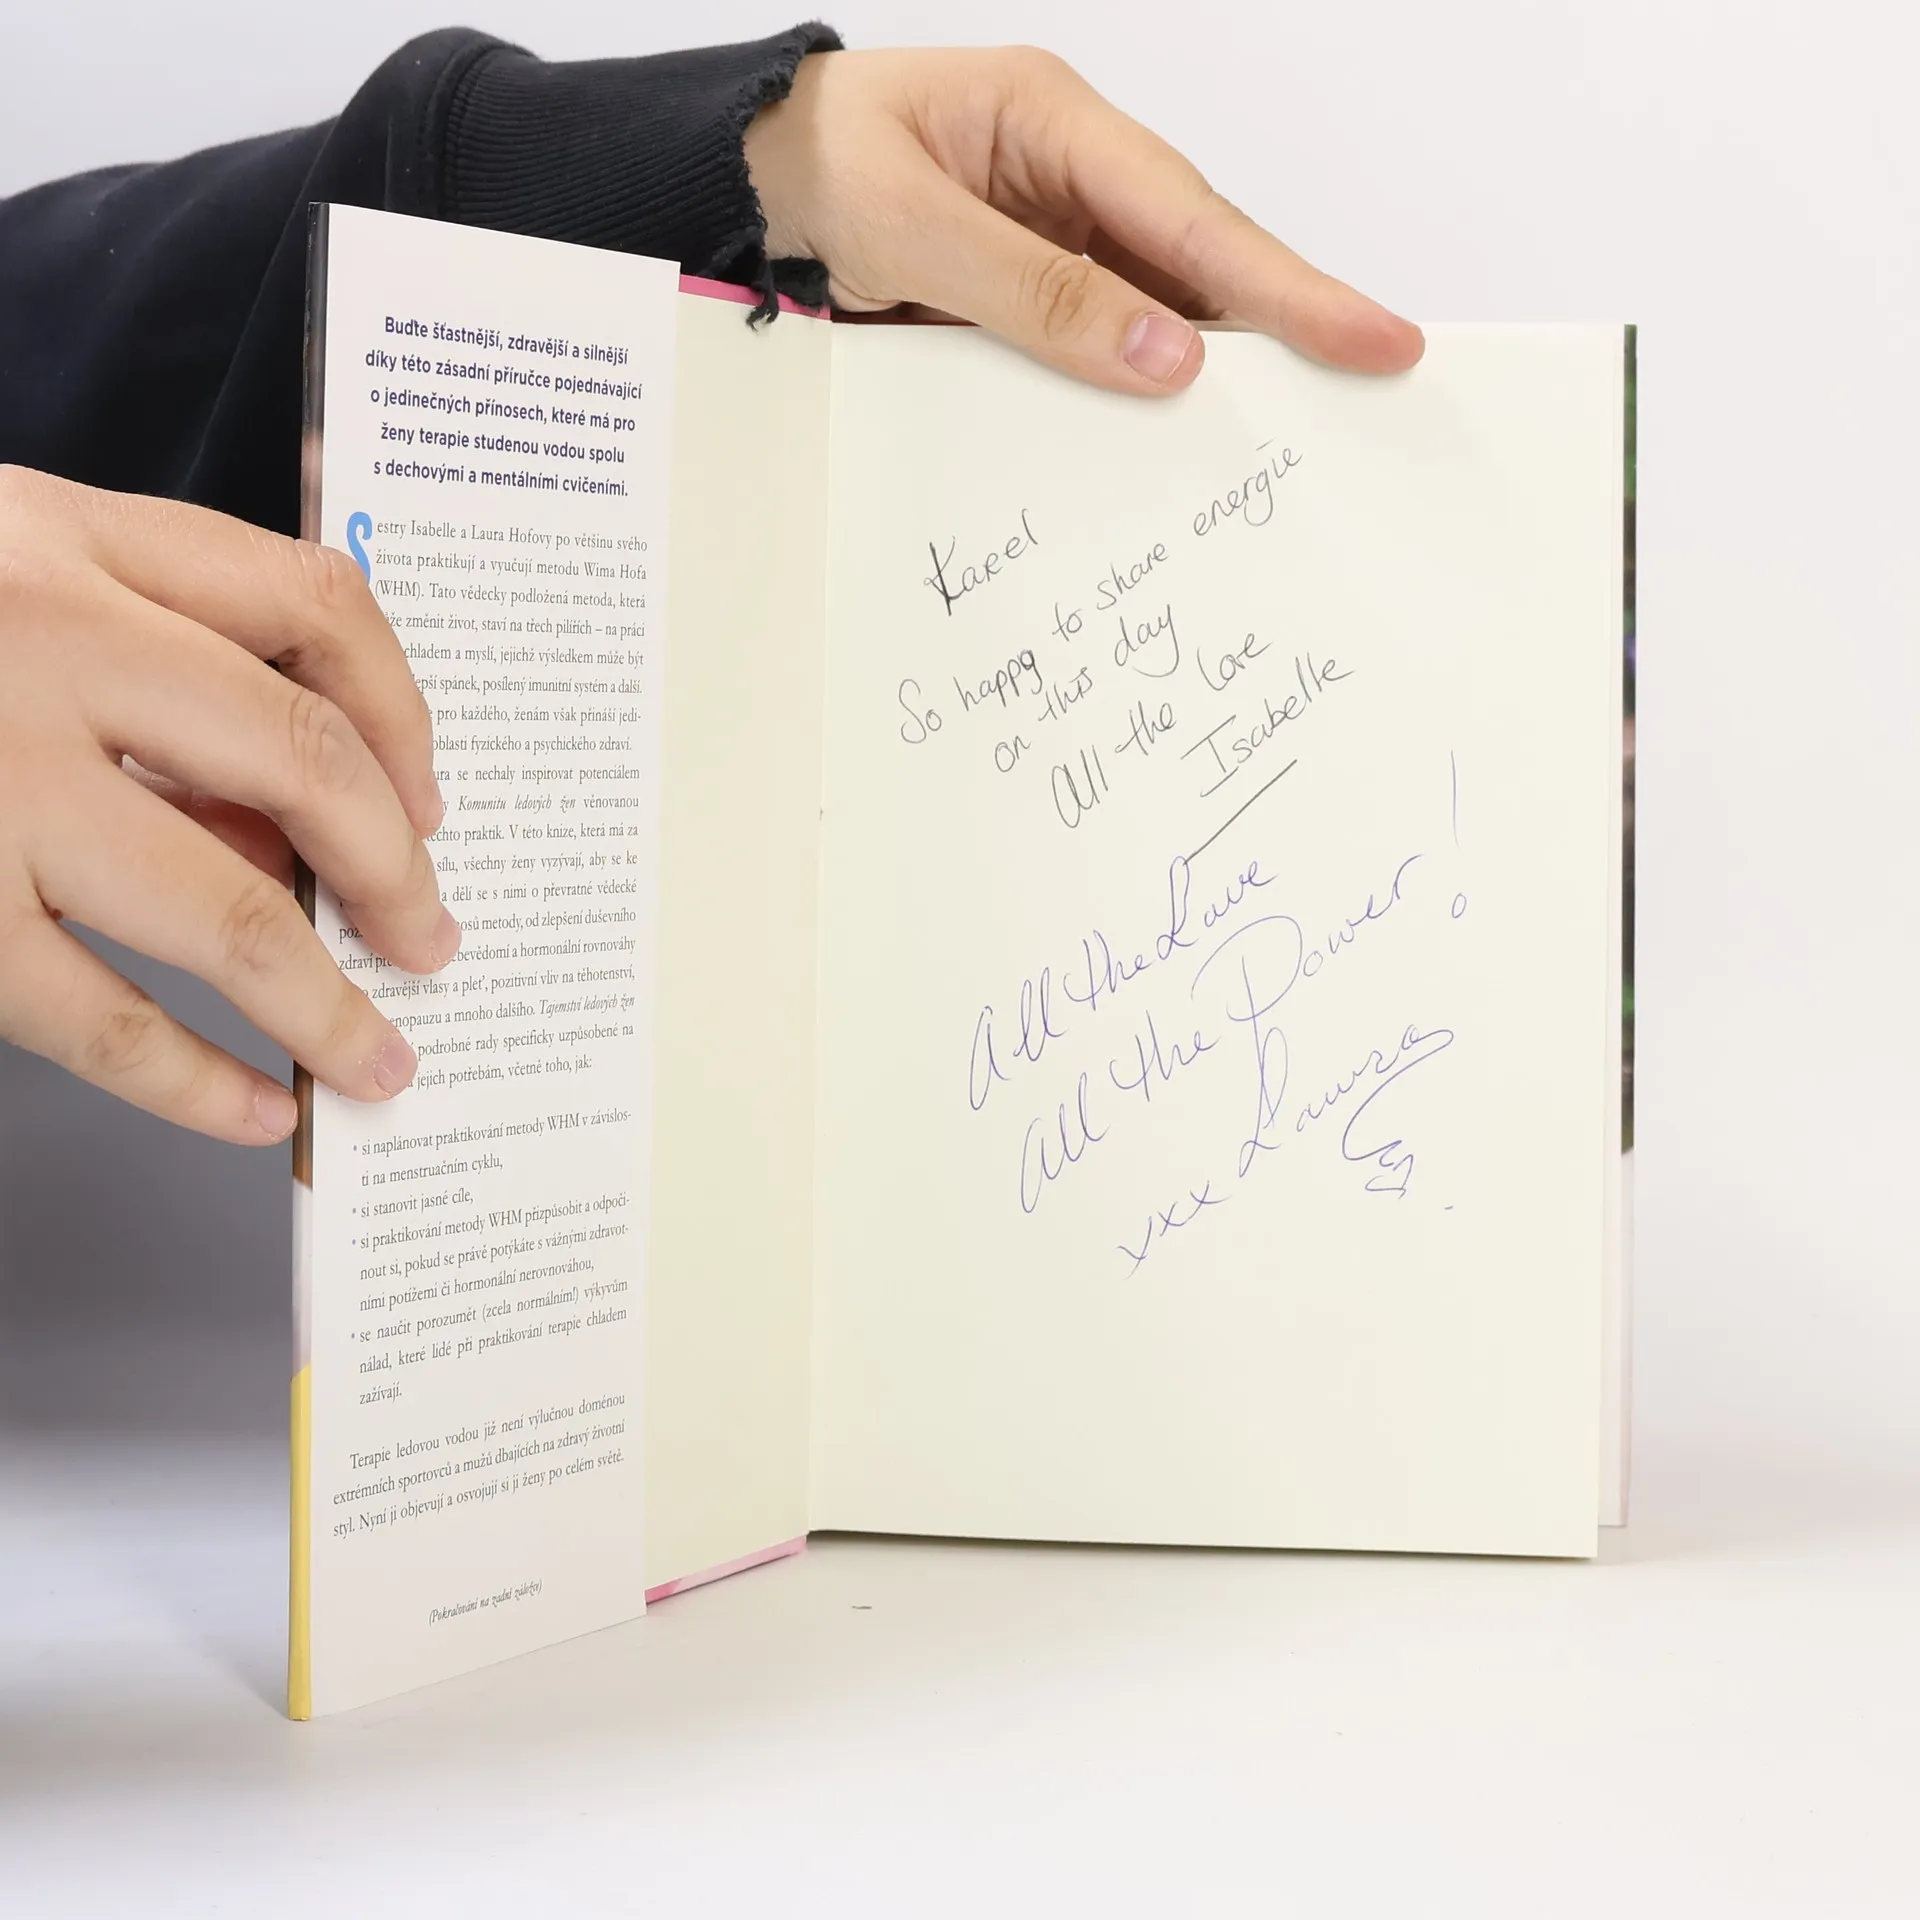 Buďte šťastnější, zdravější a silnější
díky této zásadní příručce pojednávající
o jedinečných přínosech, které má pro
ženy terapie studenou vodou spolu
s dechovými a mentálními cvičeními.
Sestry Isabelle a Laura Hofovy po většinu svého
života praktikují a vyučují metodu Wima Hofa
(WHM). Tato vědecky podložená metoda, která
že změnit život, staví na třech pilířích – na práci
chladem a myslí, jejichž výsledkem může být
epší spánek, posílený imunitní systém a další.
pro každého, ženám však přináší jedi-
oblasti fyzického a psychického zdraví.
ura se nechaly inspirovat potenciálem
y Komunitu ledových žen věnovanou
echto praktik. V této knize, která má za
sílu, všechny ženy vyzývají, aby se ke
a dělí se s nimi o převratné vědecké
poz osů metody, od zlepšení duševního
zdraví př ebevědomí a hormonální rovnováhy
o zdravější vlasy a pleť, pozitivní vliv na těhotenství,
enopauzu a mnoho dalšího. Tajemství ledových žen
podrobné rady specificky uzpůsobené na
jejich potřebám, včetně toho, jak:
• si naplánovat praktikování metody WHM v závislos-
ti na menstruačním cyklu,
• si stanovit jasné cíle,
• si praktikování metody WHM přizpůsobit a odpoči-
nout si, pokud se právě potýkáte s vážnými zdravot-
ními potížemi či hormonální nerovnováhou,
• se naučit porozumět (zcela normálním!) výkyvům
nálad, které lidé při praktikování terapie chladem
zažívají.
Terapie ledovou vodou již není výlučnou doménou
extrémních sportovců a mužů dbajících na zdravý životní
styl. Nyní ji objevují a osvojují si ji ženy po celém světě.
(Pokračování na zadní záložce)
Karel
So happy to share energie
on this day
All the love
Isabelle
All the Love
All the Power!
xxx Laura